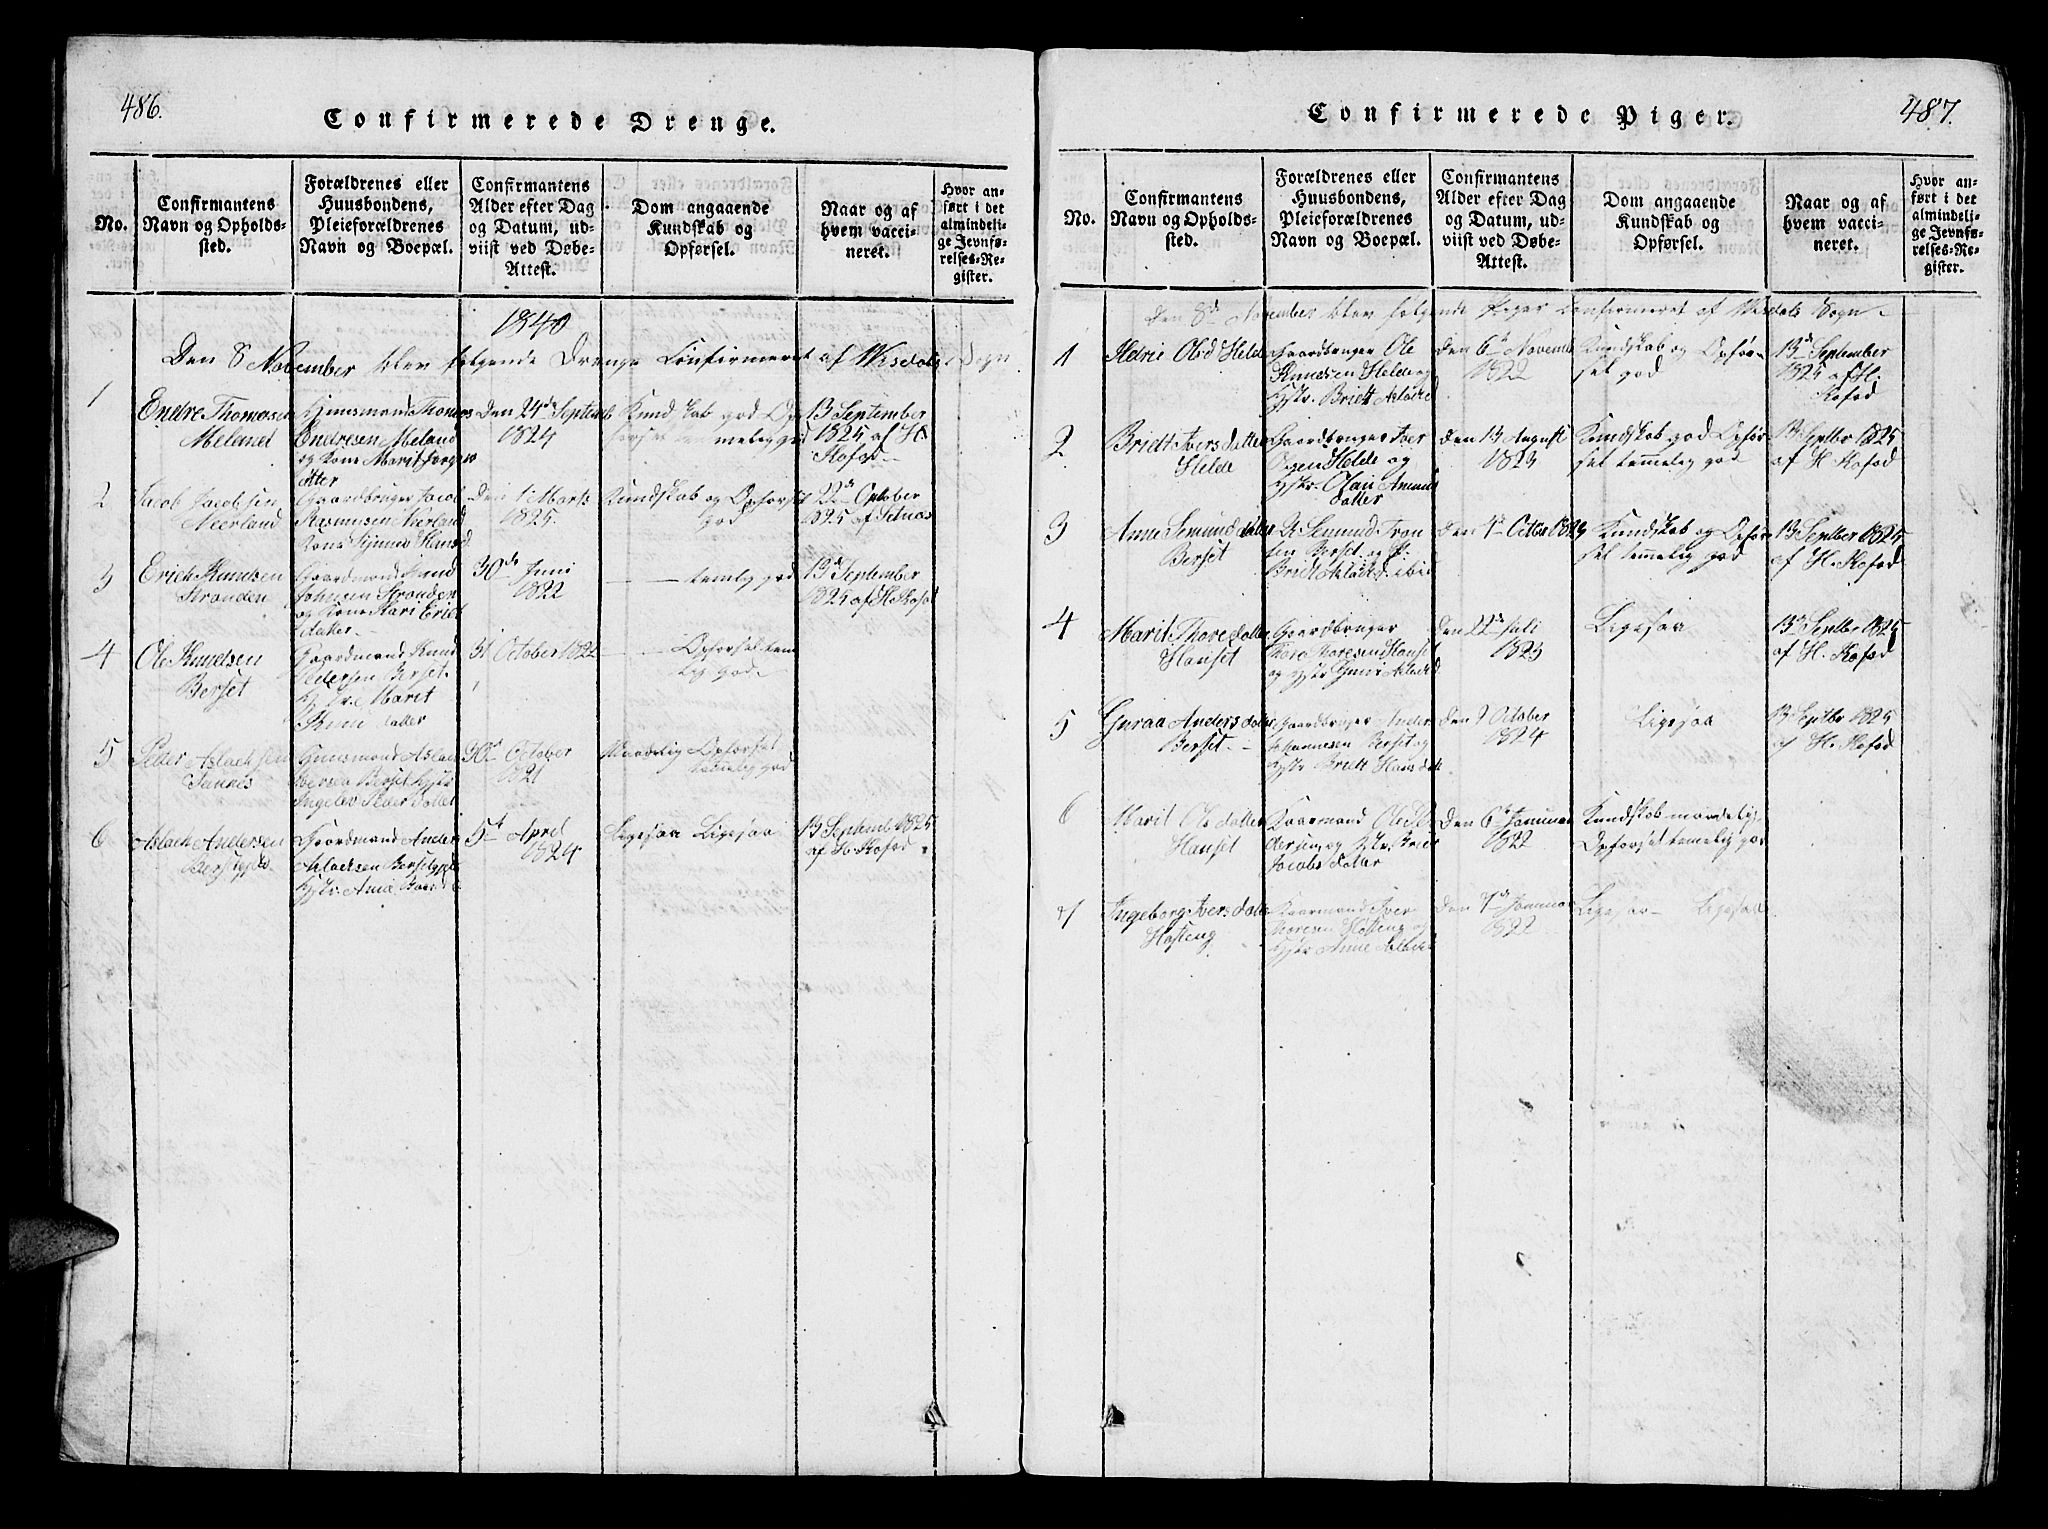 486.
Confirmerede Drenge.
No.
Confirmantens
Navn og Opholds-
sted.
Forældrenes eller
Huusbondens,
Pleieforældrenes
Navn og Boepæl.
Confirmantens
Alder efter Dag
og Datum, ud-
viist ved Døbe-
Attest.
Dom angaaende
Kundskab og
Opførsel.
Naar og af
hvem vacci-
neret.
Hvor an-
ført i det
almindeli-
ge Jevnfø-
relses-Re-
gister.
1840
Den 8 November blev følgende Drenge Confirmeret af Wisdals Sogn
1
Endre Thomasen
Meland
Huusmand Thomas
Endresen Meland
og Kone Marit
Den 24de Septemb
1824
Kundskab god Op
førsel temmelig god
13 September
1825 af H
Kofod
2
Jacob Jacobsen
Neerland
Gaardbruger Jacob
Rasmusen Neerland
Kone
Den 1 Marts
1825.
Kundskab og Opførsel
god
22de October
1825 af
3
Erich Knudsen
Stranden
Gaardmand Knud
Johnsen Stranden
og Kone Mari Erich
datter
30de Juni
1822
temlig god
13de September
1825 af H. Kofod
4
Ole Knudsen
Berset
Gaardmand Knud
Pedersen Berset
Marit
datter
31 October 1822
Opførsel tem
lig god
5
Peder Aslachsen
Huusmand Aslac
Berset
Ingelev Peder datter
30te October
1821
Maadelig Opførsel
temelig god
6
Aslach Andersen
Gaardmand Anders
Aslacksen
5te April
1824
Ligesaa Ligesaa
13 Septemb 1825
af H. Kofod
487.
Confirmerede Piger.
No.
Confirmantens
Navn og Opholds-
sted.
Forældrenes eller
Huusbondens,
Pleieforældrenes
Navn og Boepæl.
Confirmantens
Alder efter Dag
og Datum, ud-
viist ved Døbe-
Attest.
Dom angaaende
Kundskab og
Opførsel.
Naar og af
hvem vacci-
neret.
Hvor an-
ført i det
almindeli-
ge Jevnfø-
relses-Re-
gister.
Den 8de November blev følgende Piger Confirmeret af Wisdals Sogn
1
Olsd Helde
Gaardbruger Ole
Knudsen Helde og
Hstr. Bridt Aslacksd
Den 6te Novemb
1822
Kundskab og Opfør-
sel god
13de September
1825 af H.
Kofod
2
Bridt Ivers datter
Helde
Gaardbruger Iver
Olsen Helde og
Hstr. Olau
datter
Den 13 August
1823
Kundskab god Opfør
sel temelig god
13 Septbr 1825
af H. Kofod
3
Anne Semund datter
Berset
Semund Iver
sen Berset og
Bridt Aslackd. ibid
Kundskab og Opfør
sel temelig god
13 Septber 1825
af H. Kofod
4
Marit Thore datter
Hanset
Gaardbruger
Thore Thoresen Hanset
og Hstr
Den 22de Juli
1823
Ligesaa
13de Septbr 1825
af H. Kofod
5
Guraa Anders datter
Berset
Gaardbruger Anders
Johannesen Berset og
Hstr Bridt Hans datt
Den 9 October
1824
Ligesaa
13 Septbr 1825
af H. Kofod
6
Marit Ols datter
Hanset
Gaarmand Ole
og Hstr.
Jacobs datter
Den 6te Januar
1822
Kundskab maadelig
Opførsel temelig god
7
Ingeborg Ivers datter
Hasteng
Gaarmand Iver
Thoresen Hasteng og
Hstr Anne Aslackd
Den 7de Januar
1822
Ligesaa Ligesaa